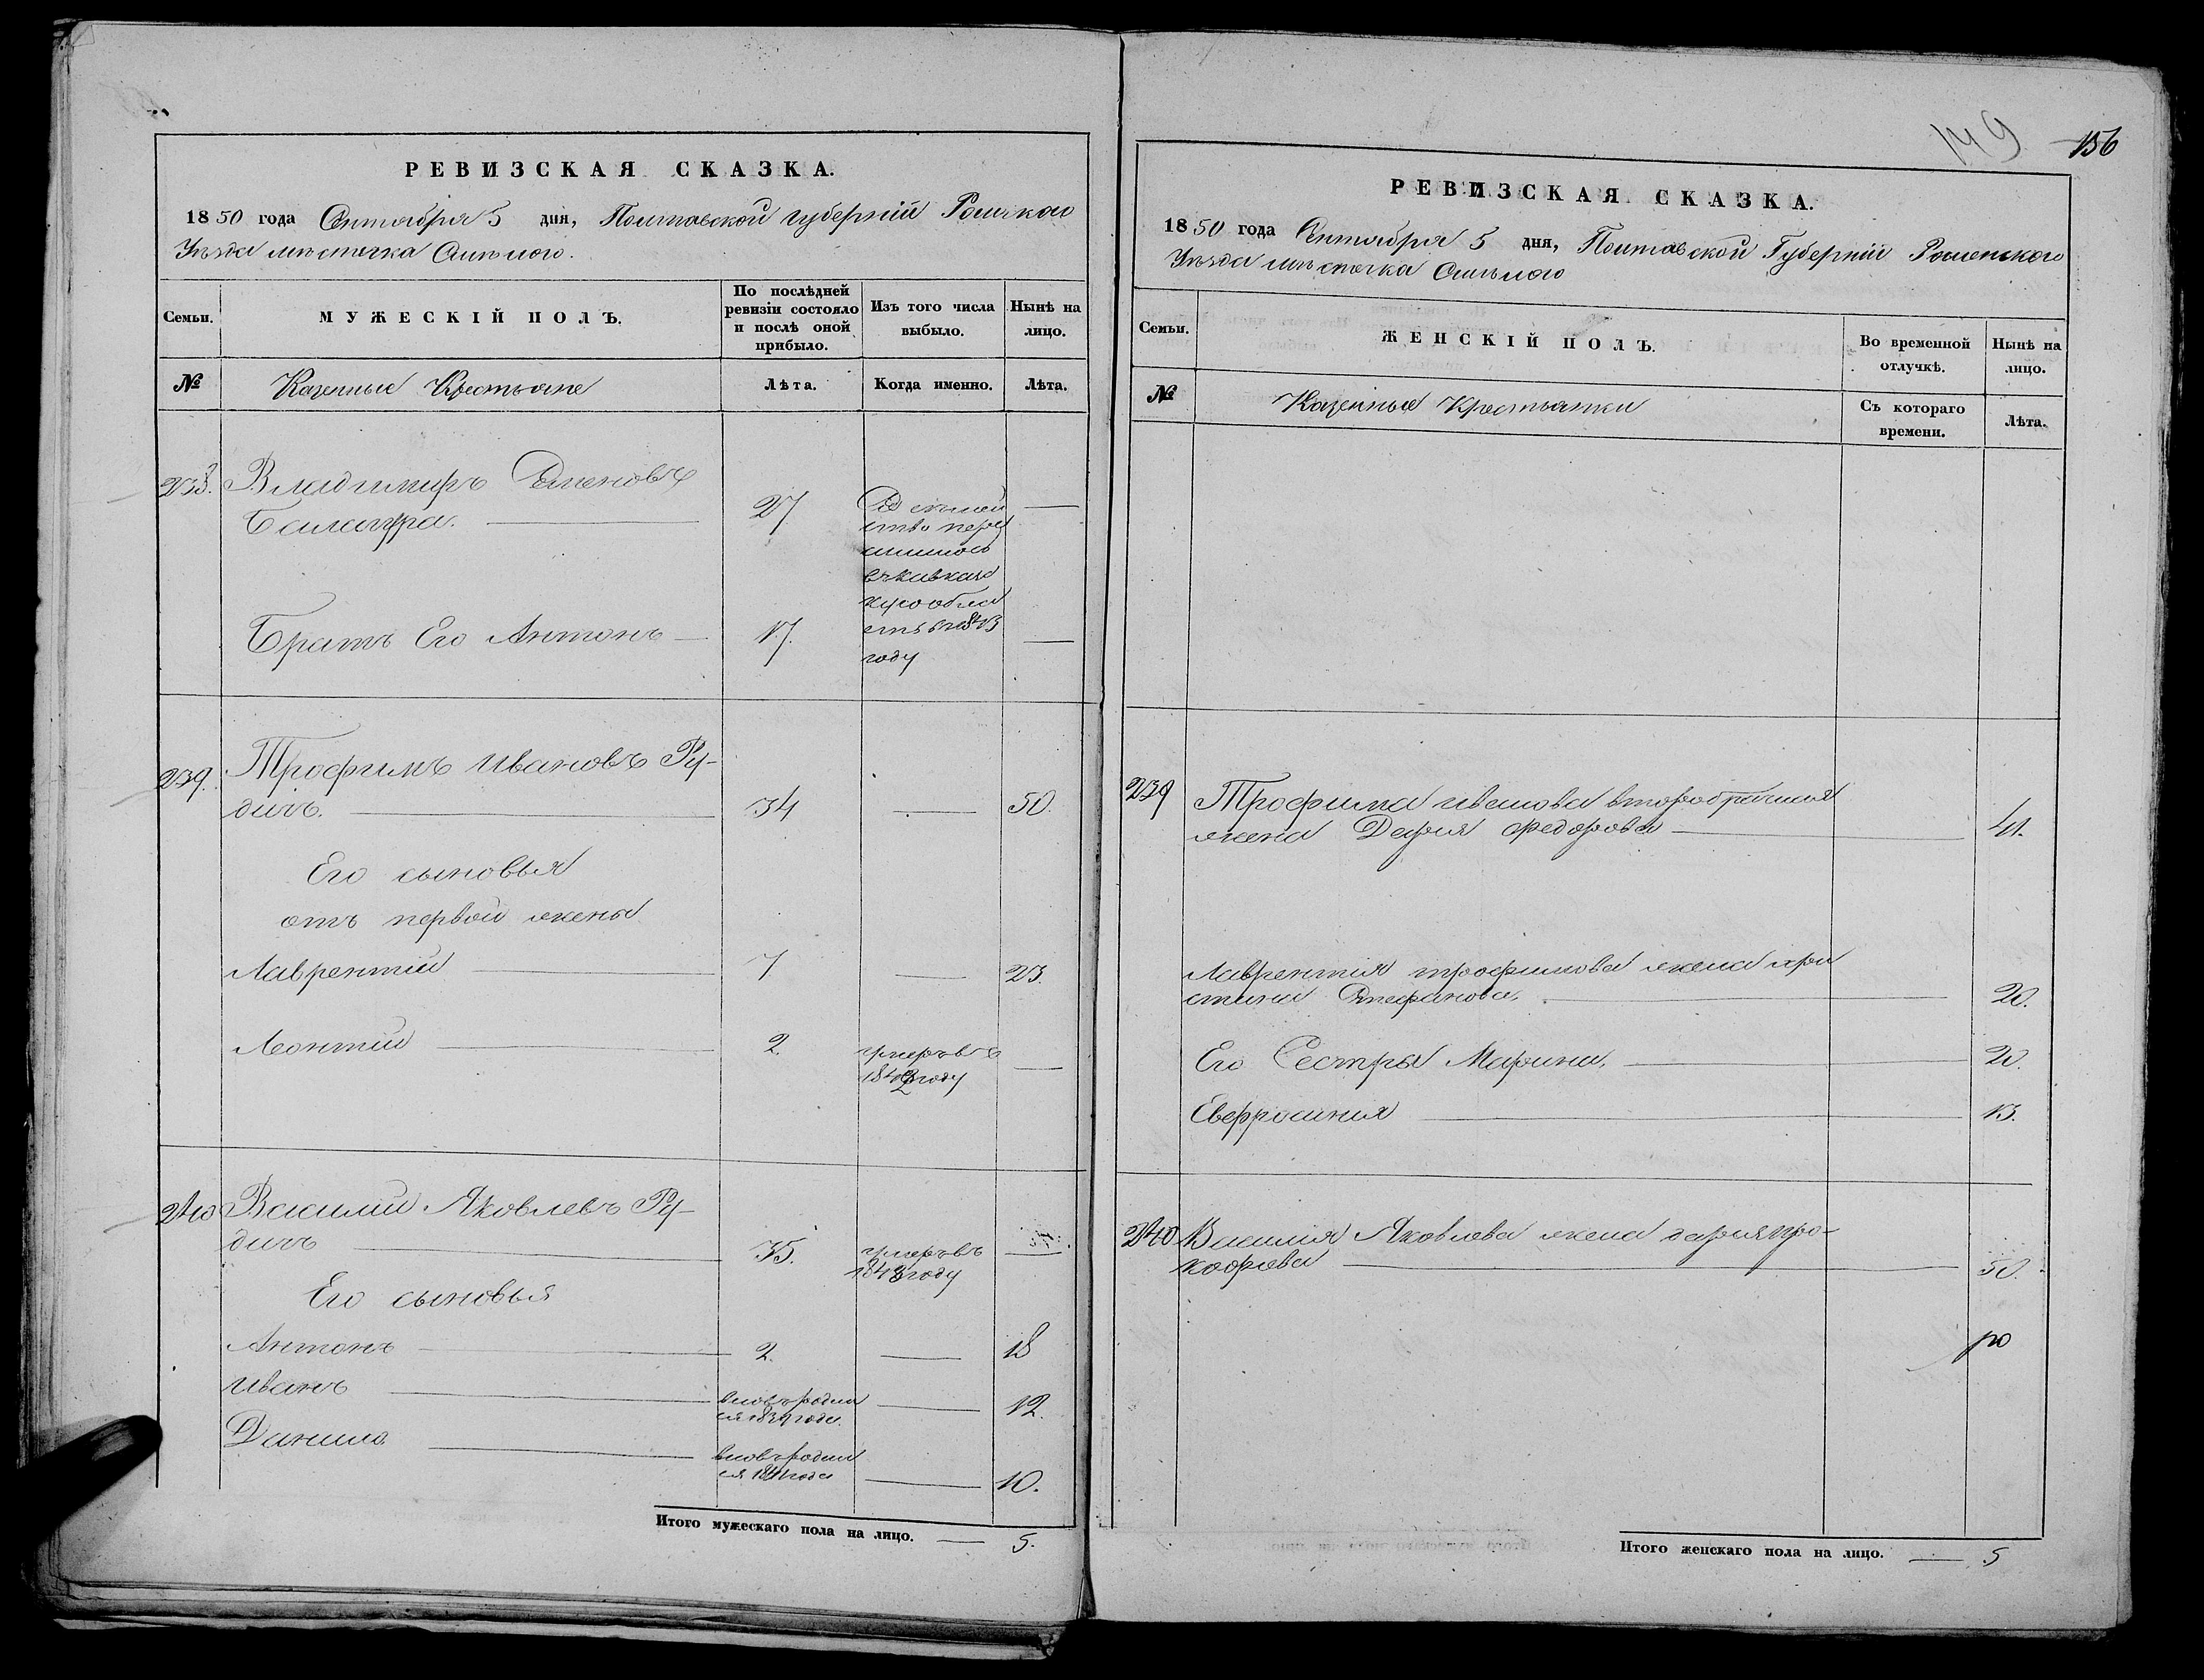 РЕВИЗСКАЯ СКАЗКА.
1850 года Сентября 5 дня, Полтавской губерніи Ромскаго
Уѣзда мѣстечка Смѣлого.
Семьи.
МУЖЕСКІЙ ПОЛЪ.
По послѣдней ревизіи состояло и послѣ оной прибыло.
Изъ того числа выбыло.
Нынѣ на лицо.
№
Казенные Крестьяне
Лѣта.
Когда именно.
Лѣта.
238. Владимиръ Семеновъ
27
Братъ Его Антонъ 17.
году
239. Трофимъ Ивановъ Ру-
дичь. 34 50.
Его сыновья
отъ первой жены
Лаврентий 7 23.
Леонтий 2. умеръ въ
184 году
240 Василий Яковлевъ Ру-
дичь 35. умеръ въ
1848 году
Его сыновья
Антонъ 2. 18
Иванъ вновь родил
ся 1839 года. 12.
Данило вновь родил
ся 1841 года 10.
Итого мужескаго пола на лицо. 5.
149 156
РЕВИЗСКАЯ СКАЗКА.
1850 года Сентября 5 дня, Полтавской Губерніи Роменского
Уѣзда мѣстечка Смѣлого
Семьи.
ЖЕНСКІЙ ПОЛЪ.
Во временной отлучкѣ.
Нынѣ на лицо.
№
Казенные Крестьянки
Съ котораго времени.
Лѣта.
239 Трофима Иванова второбрачная
жена Дария Федорова 41.
Лаврентия трофимова жена хри
стина Стефанова, 20.
Его Сестры Марина, 20.
Евфросиния 13.
240 Василия Яковлева жена дария про-
кофиева 50.
Итого женскаго пола на лицо. 5